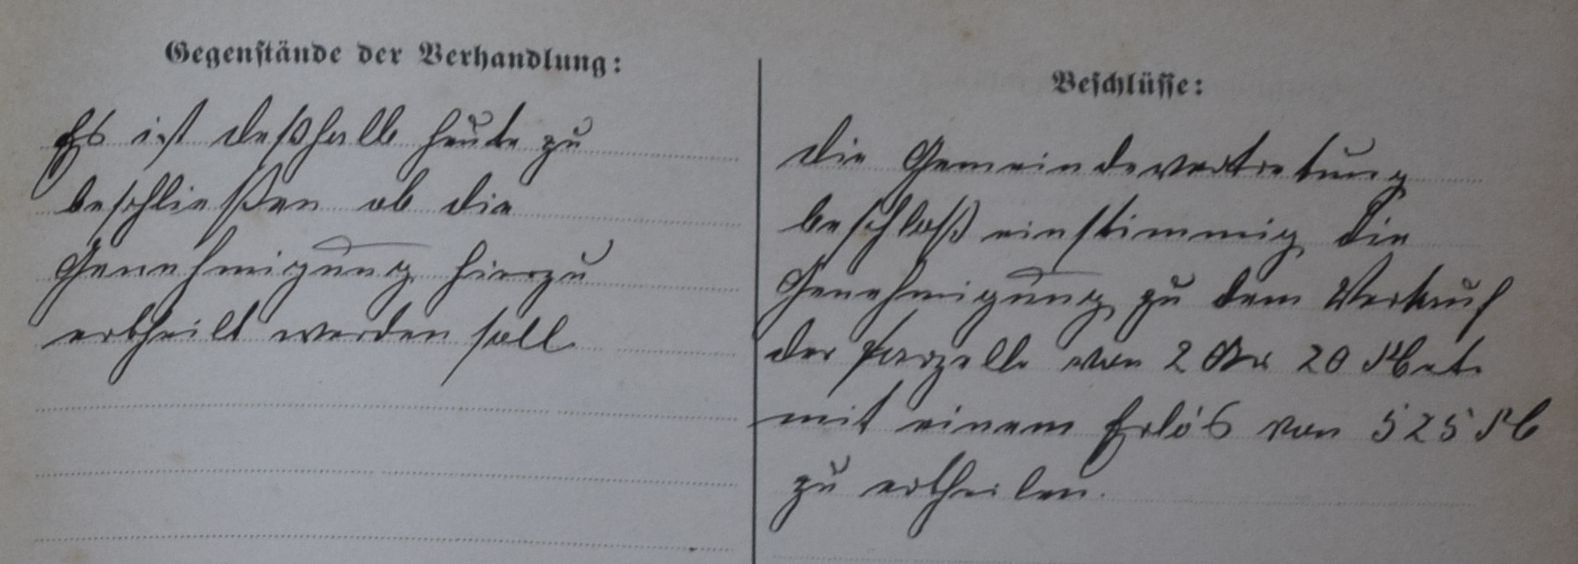 Gegenstände der Verhandlung:
Es ist deßhalb heute zu
beschließen ob die
Genehmigung hierzu
ertheilt werden soll
Beschlüsse:
Die Gemeindevertretung
beschloß einstimmig die
Genehmigung zu dem Verkauf
der Parzelle von 2 Ar 20 Met.
mit einem Erlös von 525 M
zu ertheilen.